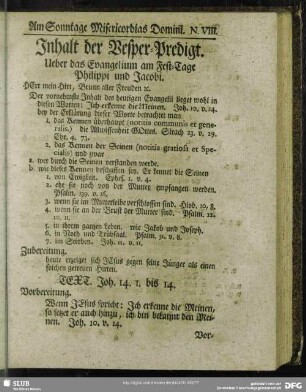 Am Sonntage Misericordias Domini. N. VIII.
Inhalt der Vesper-Predigt.
Ueber das Evangelium am Fest-Tage
Philippi und Jacobi.
HErr mein Hirt, Brunn aller Freuden ꝛc.
Der vornehmste Inhalt des heutigen Evangelii lieget wohl in
diesen Worten: Ich erkenne die Meinen. Joh. 10. v. 14.
bey der Erklärung dieser Worte betrachtet man
1. das Kennen überhaupt (notitia communis er gene-
ralis) die Allwissenheit GOttes. Sirach 23. v. 29.
2. das Kennen der Seinen (notitia gratiosa er Spe-
cialis) und zwar
a. wer durch die Seinen verstanden werde.
1. von Ewigkeit. Ephes. 1. v. 4.
2. ehe sie noch von der Mutter empfangen werden.
Psalm. 139. v. 16.
3. wenn sie im Mutterleibe verschlossen sind. Hiob. 10, 8.
4. wenn sie an der Brust der Mutter sind. Psalm. 22.
10. 11.
5. in ihrem gantzen Leben. wie Jakob und Joseph.
6. in Noth und Trübsaal. Psalm. 31. v. 8.
7. im Sterben. Joh. 11. v. 11.
Zubereitung.
heute erzeiget sich JEsus gegen seine Jünger als einen
solchen getreuen Hirten.
TEXT. Joh. 14. 1. bis 14.
Vorbereitung.
Wenn JEsus spricht: Ich erkenne die Meinen,
so setzet er auch hinzu, ich bin bekannt den Mei-
nen. Joh. 10. v. 14.
Vor-
SLUB
DFG